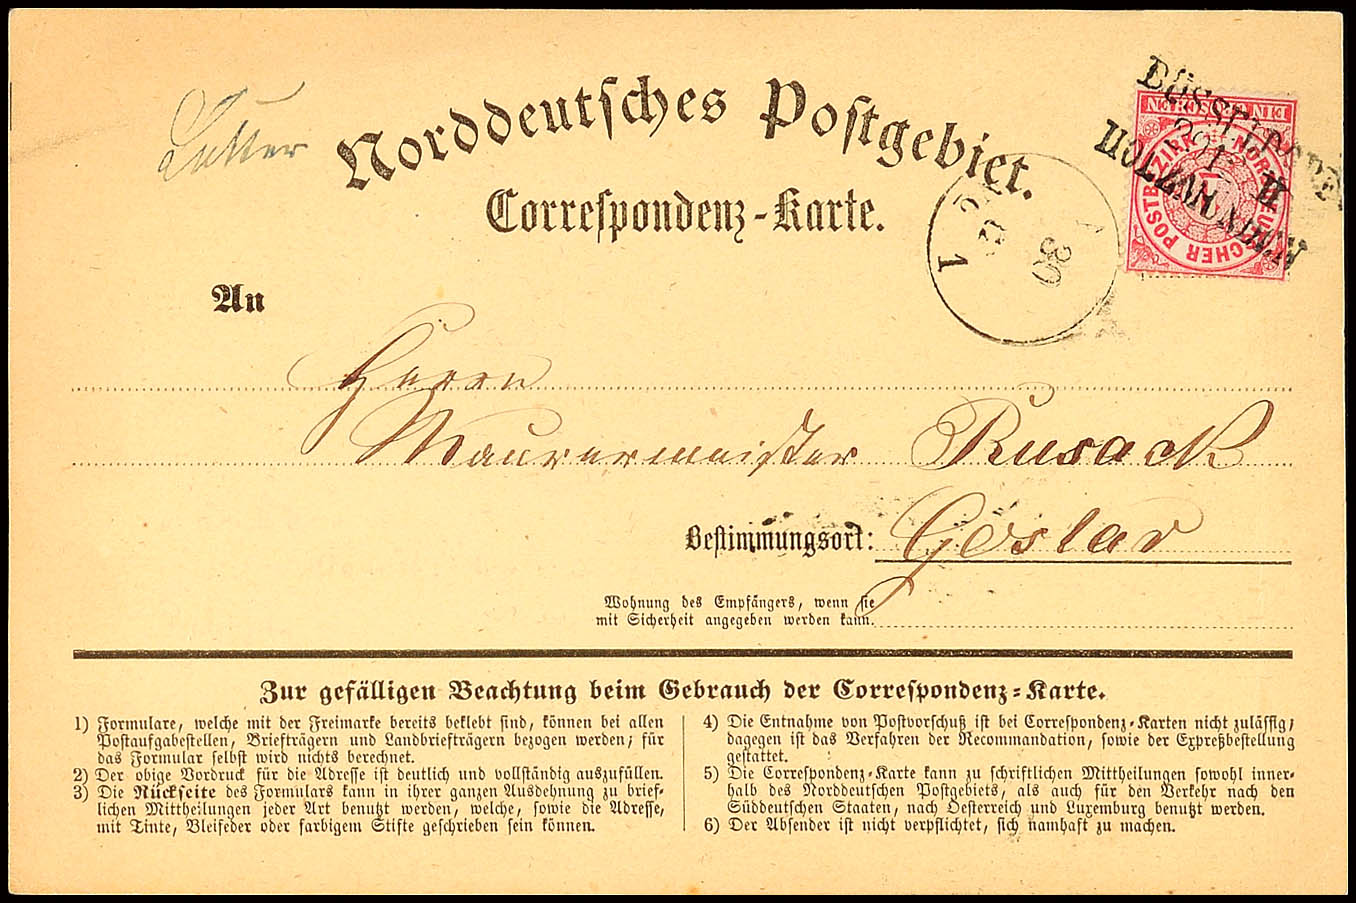 Lutter
Norddeutsches Postgebiet.
Correspondenz-Karte.
EIN GROSCHEN
NORDDEUTSCHER POSTBEZIRK
1
II
HOLZMINDEN
1
An
Herrn
Maurermeister Rusack
Bestimmungsort: Goslar
Wohnung des Empfängers, wenn sie
mit Sicherheit angegeben werden kann.
Zur gefälligen Beachtung beim Gebrauch der Correspondenz-Karte.
1) Formulare, welche mit der Freimarke bereits beklebt sind, können bei allen
Postaufgabestellen, Briefträgern und Landbriefträgern bezogen werden; für
das Formular selbst wird nichts berechnet.
2) Der obige Vordruck für die Adresse ist deutlich und vollständig auszufüllen.
3) Die Rückseite des Formulars kann in ihrer ganzen Ausdehnung zu brief-
lichen Mittheilungen jeder Art benutzt werden, welche, sowie die Adresse,
mit Tinte, Bleifeder oder farbigem Stifte geschrieben sein können.
4) Die Entnahme von Postvorschuß ist bei Correspondenz-Karten nicht zulässig;
dagegen ist das Verfahren der Recommandation, sowie der Expreßbestellung
gestattet.
5) Die Correspondenz-Karte kann zu schriftlichen Mittheilungen sowohl inner-
halb des Norddeutschen Postgebiets, als auch für den Verkehr nach den
Süddeutschen Staaten, nach Oesterreich und Luxemburg benutzt werden.
6) Der Absender ist nicht verpflichtet, sich namhaft zu machen.